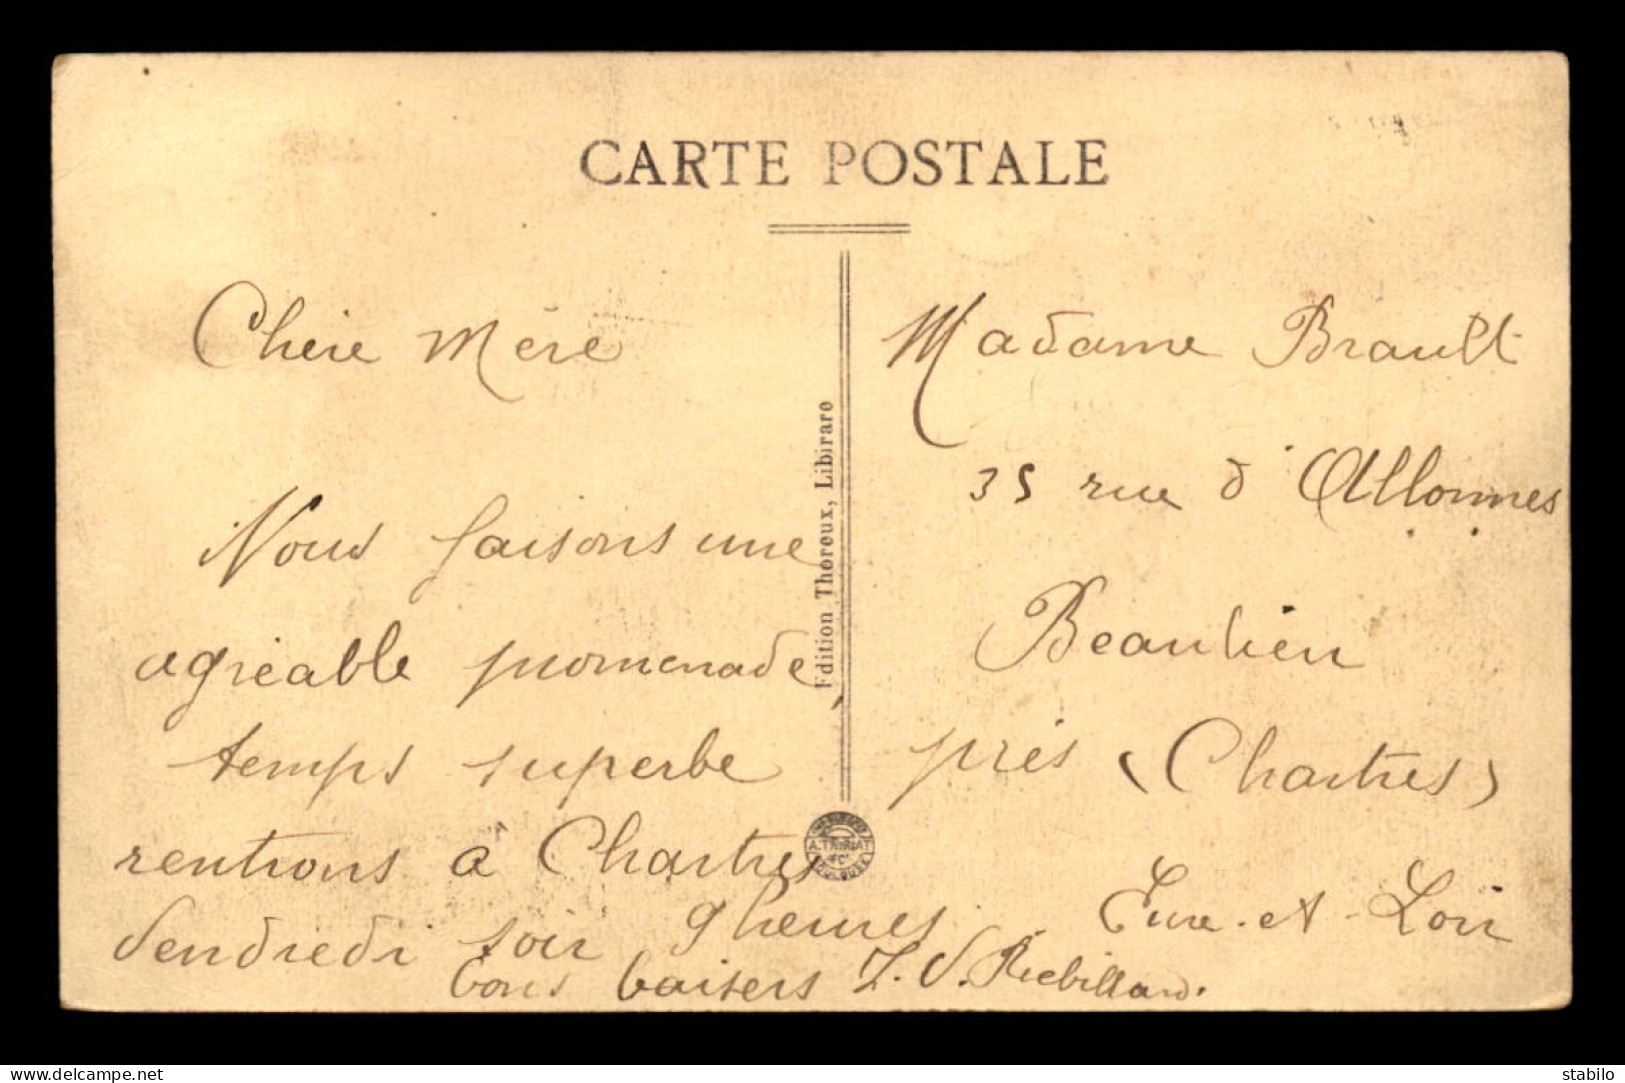 CARTE POSTALE
Chère Mère
Nous faisons une
agréable promenade,
temps superbe
rentrons a Chartres
Vendredi soir 9 heures
bons baisers J. V. Rebillard.
Edition Thoreux, Libirare
Madame Brault
35 rue d'Allonnes
Beaulieu
près (Chartres)
Eure-et-Loir
www.delcampe.net
stabilo